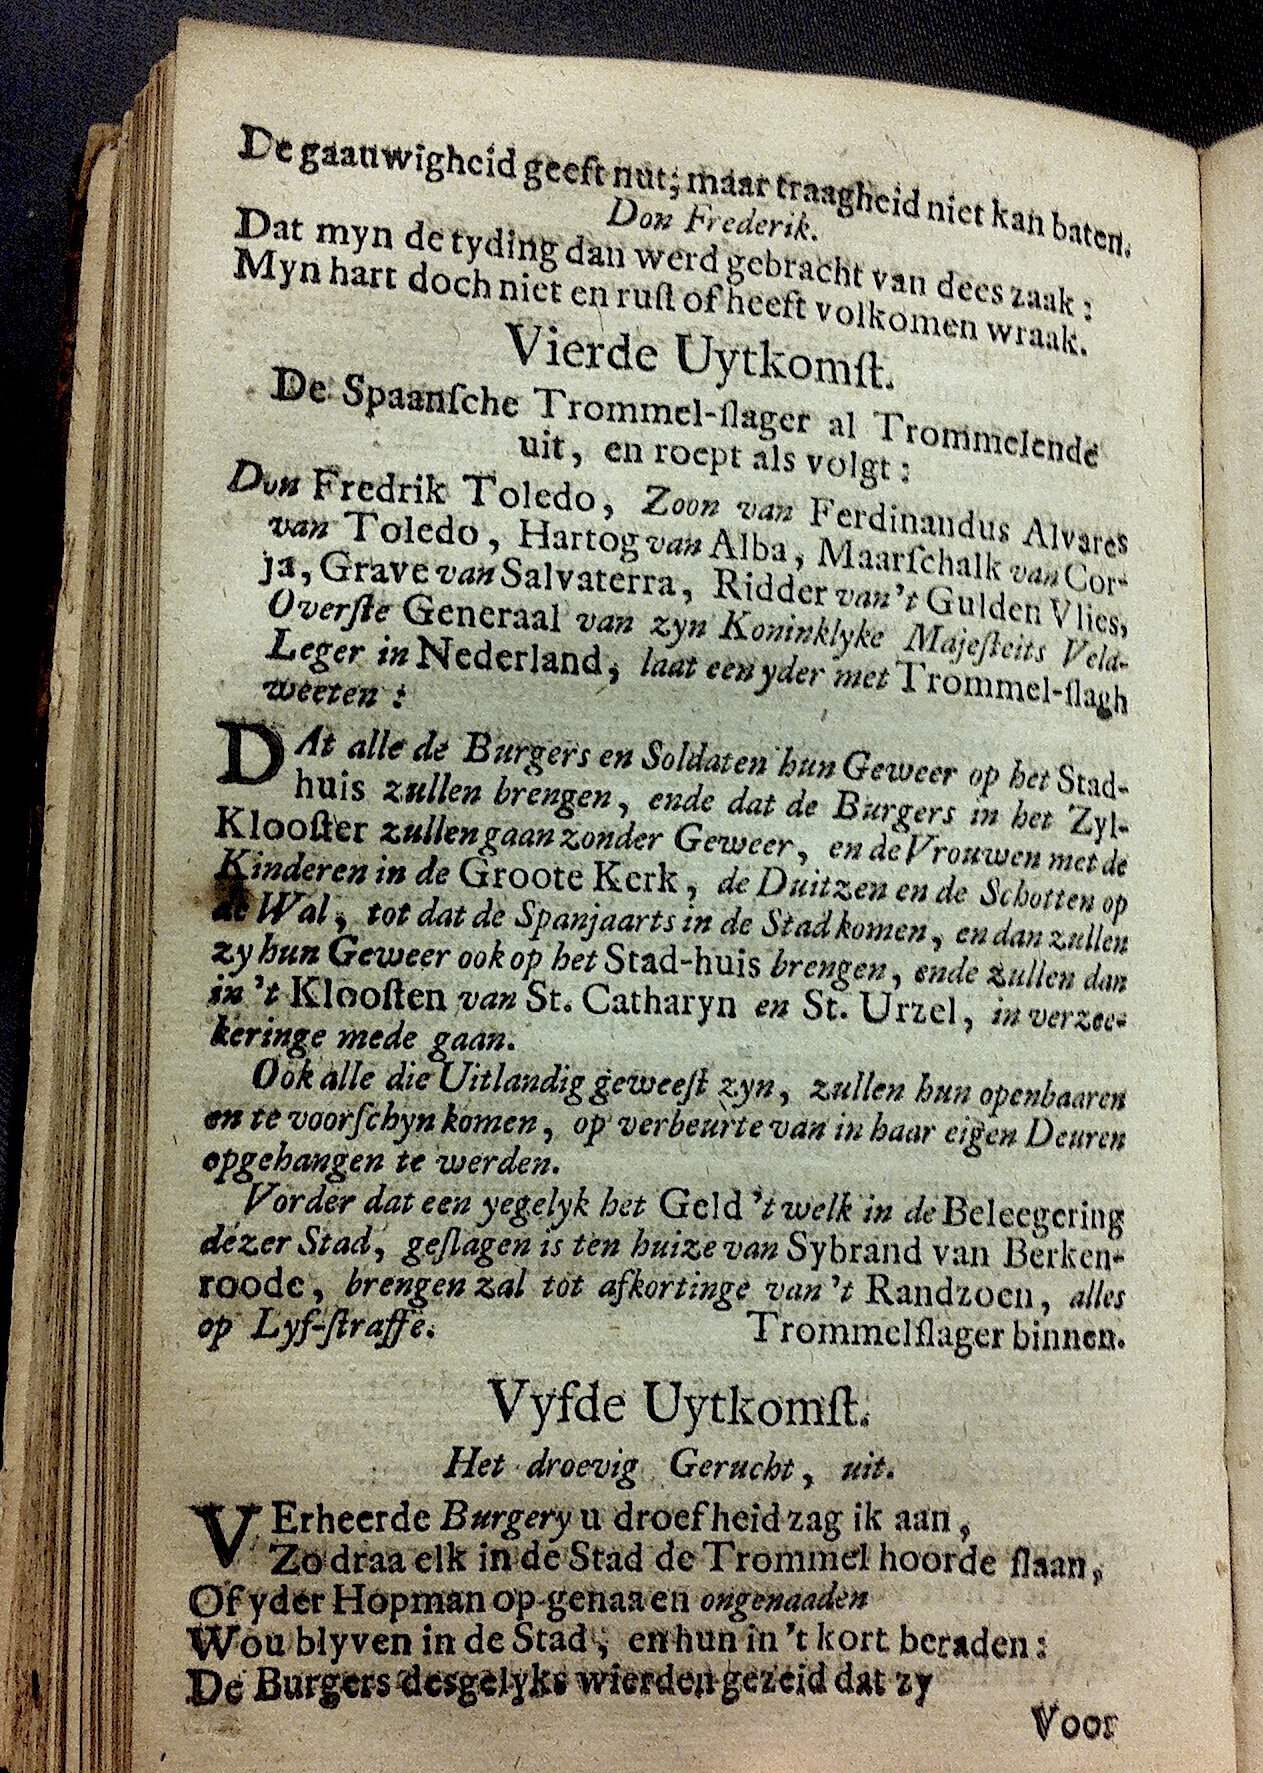 De gaauwigheid geeft nut; maar traagheid niet kan baten.
Don Frederik.
Dat myn de tyding dan werd gebracht van dees zaak:
Myn hart doch niet en ruſt of heeft volkomen wraak.
Vierde Uytkomſt.
De Spaanſche Trommel-ſlager al Trommelende
uit, en roept als volgt:
Don Fredrik Toledo, Zoon van Ferdinandus Alvares
van Toledo, Hartog van Alba, Maarſchalk van Cor-
ja, Grave van Salvaterra, Ridder van 't Gulden Vlies,
Overſte Generaal van zyn Koninklyke Majeſteits Veld-
Leger in Nederland, laat een yder met Trommel-ſlagh
weeten:
DAt alle de Burgers en Soldaten hun Geweer op het Stad-
huis zullen brengen, ende dat de Burgers in het Zyl-
Klooſter zullen gaan zonder Geweer, en de Vrouwen met de
Kinderen in de Groote Kerk, de Duitzen en de Schotten op
de Wal, tot dat de Spanjaarts in de Stad komen, en dan zullen
zy hun Geweer ook op het Stad-huis brengen, ende zullen dan
in 't Klooſten van St. Catharyn en St. Urzel, in verzee-
keringe mede gaan.
Ook alle die Uitlandig geweeſt zyn, zullen hun openbaaren
en te voorſchyn komen, op verbeurte van in haar eigen Deuren
opgehangen te werden.
Vorder dat een yegelyk het Geld 't welk in de Beleegering
dézer Stad, geſlagen is ten huize van Sybrand van Berken-
roode, brengen zal tot afkortinge van 't Randzoen, alles
op Lyf-ſtraffe.      Trommelſlager binnen.
Vyfde Uytkomſt.
Het droevig Gerucht, uit.
VErheerde Burgery u droefheid zag ik aan,
Zo draa elk in de Stad de Trommel hoorde ſlaan,
Of yder Hopman op genaa en ongenaaden
Wou blyven in de Stad, en hun in 't kort beraden:
De Burgers desgelyks wierden gezeid dat zy
Voor